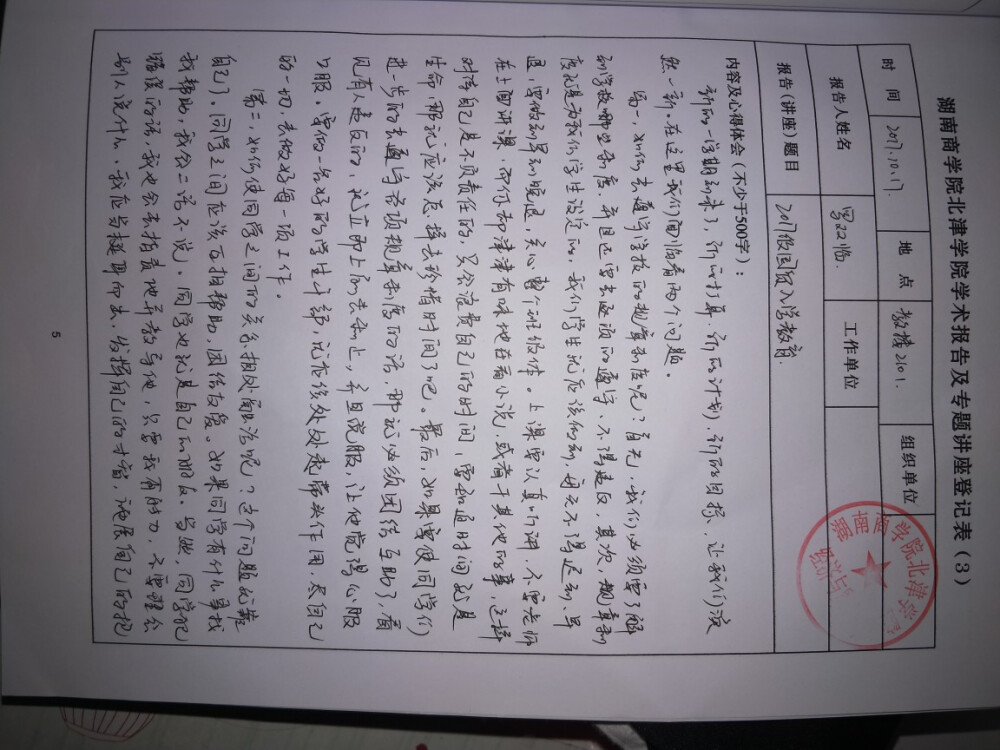 湖南商学院北津学院学术报告及专题讲座登记表（3）
时 间 2017.10.17. 地 点 教楼2101. 组织单位
报告人姓名 工作单位
报告（讲座）题目 2017级国贸入学教育
湖南商学院北津学
内容及心得体会（不少于500字）：
新的一学期到来了，新的打算、新的计划、新的目标、让我们焕
然一新。在这里我们面临着两个问题。
第一，如何去遵守学校的规章制度呢？首先，我们必须要了解
到学校哪些制度，并且还要去必须的遵守，不得违反，其次，规章制
度就是为我们学生设定的，我们学生就应该做到，每天不得迟到、早
退，要做到早到晚退，关心整个班级体。上课要认真听讲，不要老师
在上面讲课，而你却津津有味地在看小说，或者干其他的事，这样
对待自己是不负责任的，只会浪费自己的时间，要知道时间就是
生命，那就应该怎样去珍惜时间了吧。最后，如果要使同学们
进一步的去遵守各项规章制度的话，那就必须团结互助了，看
见有人违反的，就立即上前去制止，并且说服，让他觉得心服
口服。要做一名好的学生干部，就应该处处起带头作用，尽自己
的一切，去做好每一项工作。
第二，如何使同学之间的关系相处融洽呢？这个问题就靠
自己了。同学之间应该互相帮助，团结友爱。如果同学有什么事找
我帮助，我会二话不说。同学也就是自己的朋友。当然，同学犯
错误的话，我也会去指责他并教导他，只要我有能力，不要理会
别人说什么，我应当挺身而出，发挥自己的才富，施展自己的抱
5